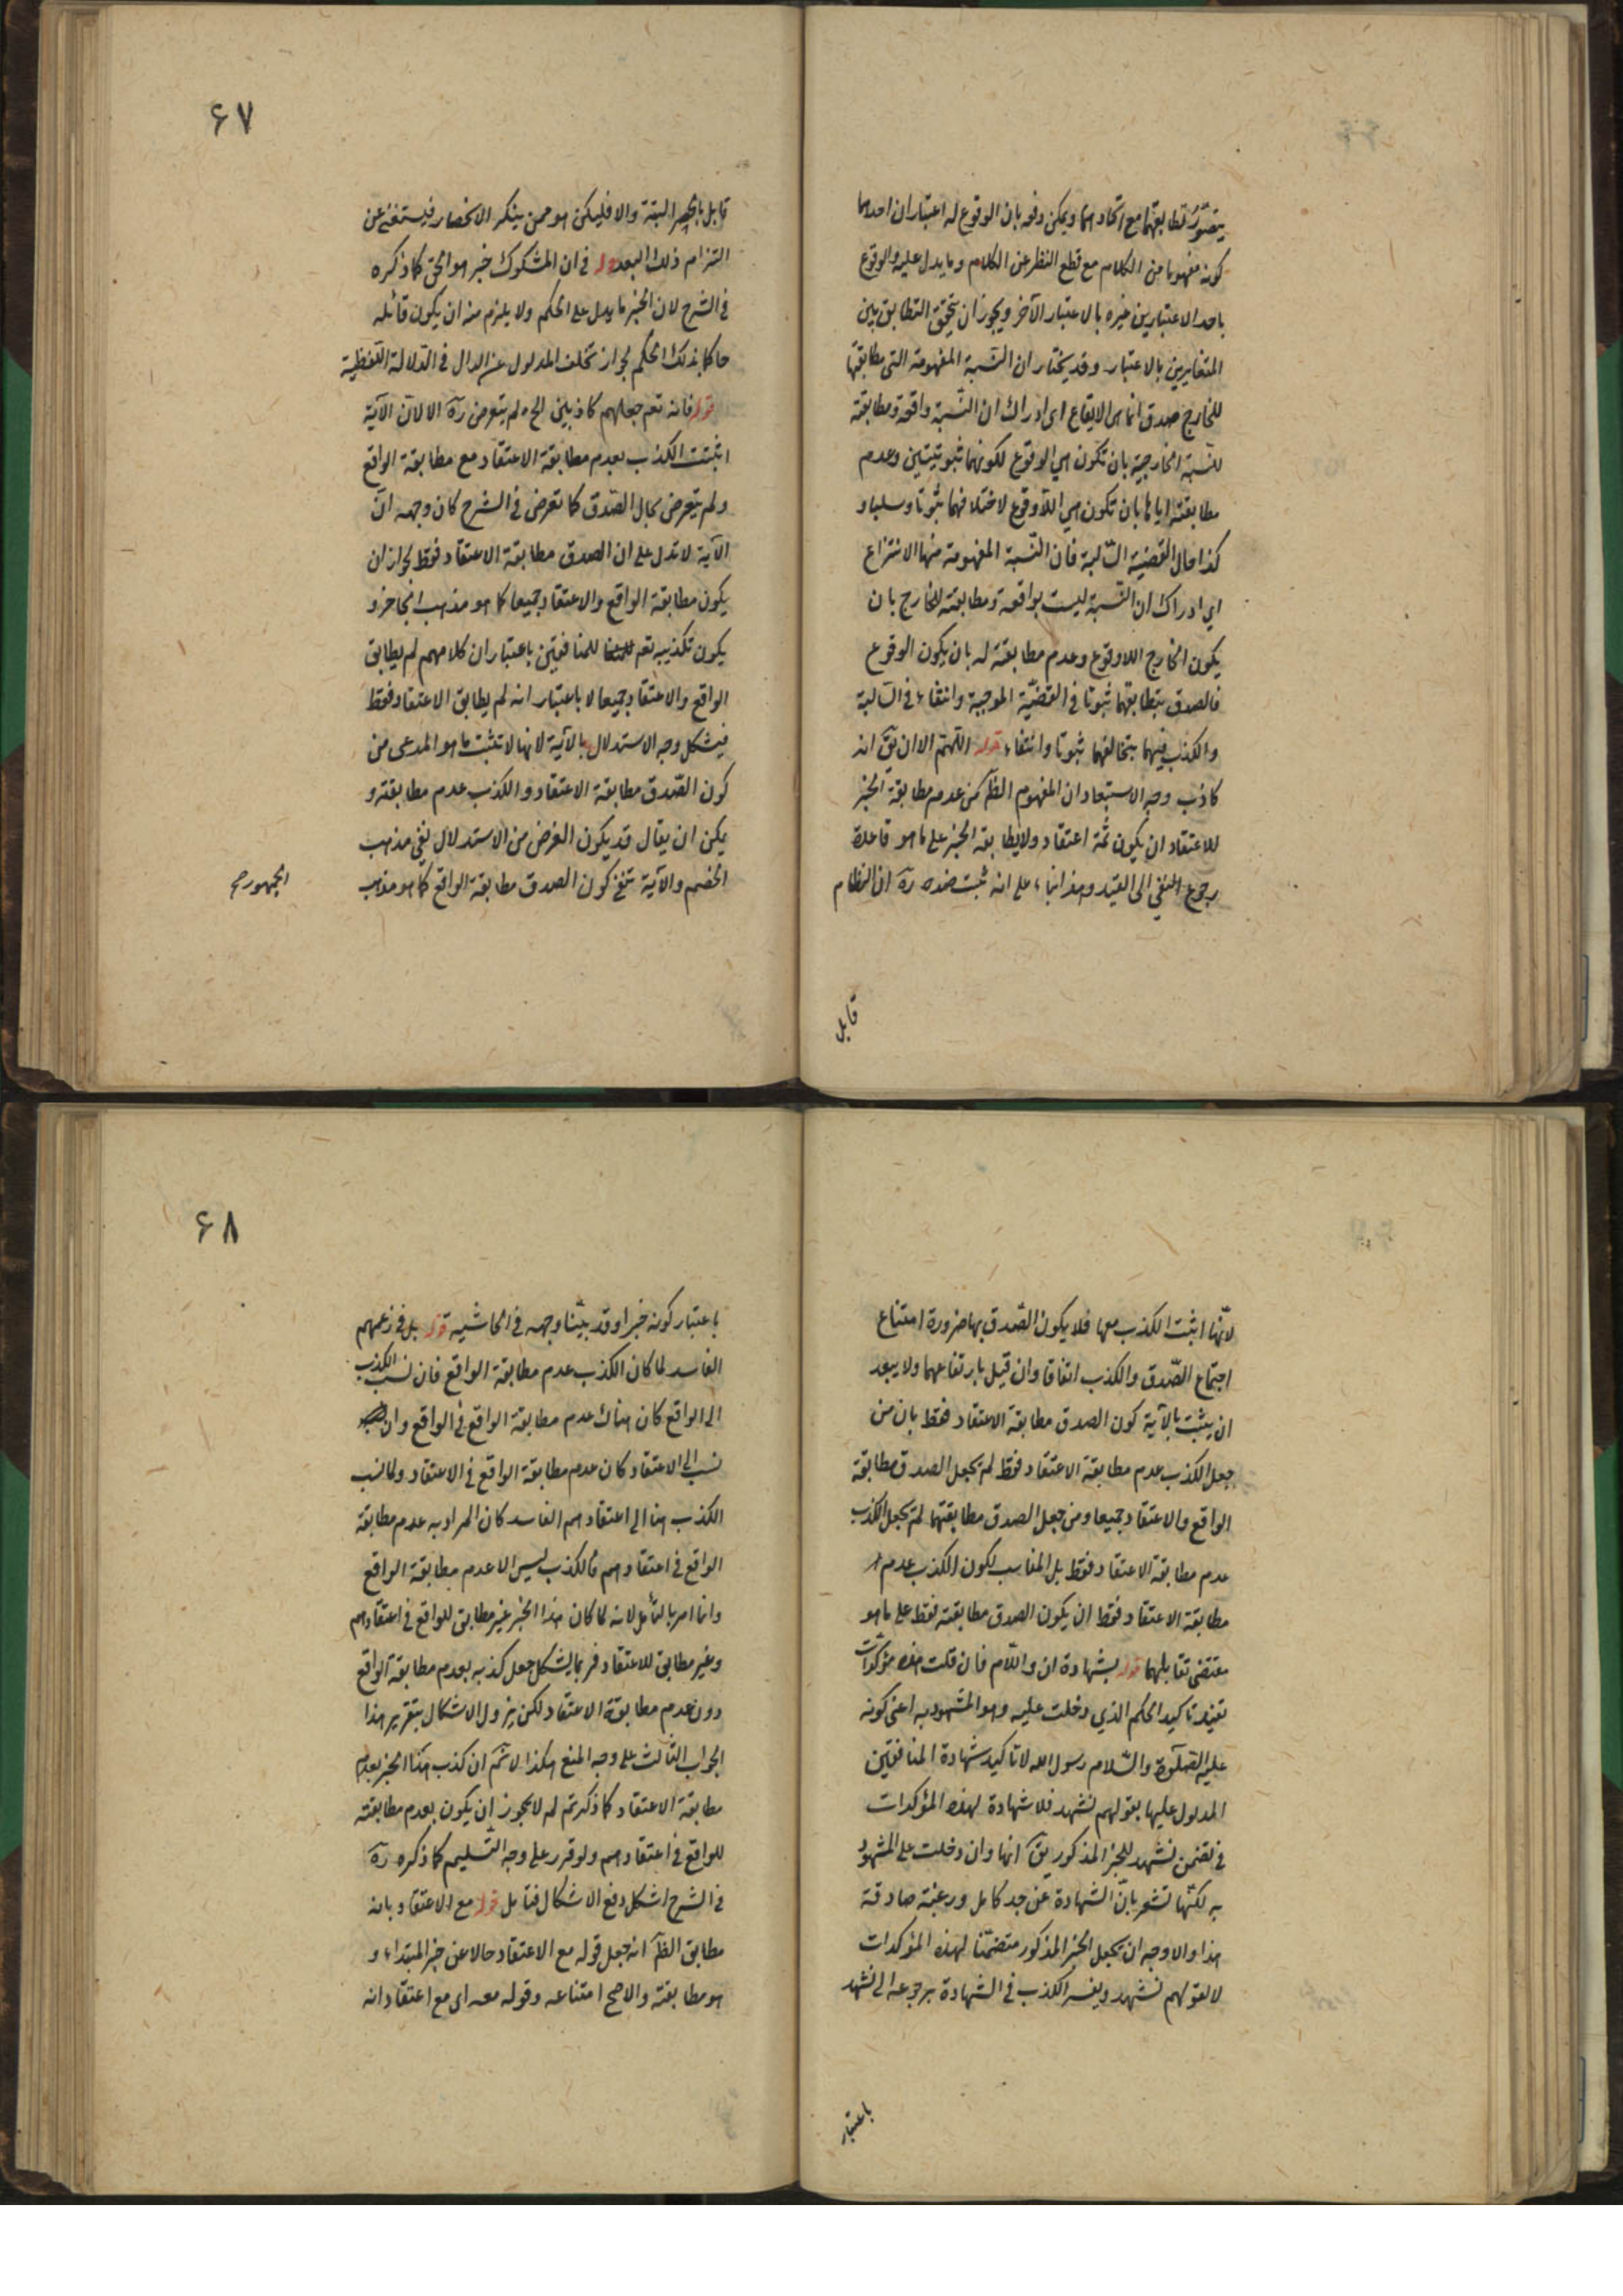 يتصوّر تطابقهما مع اتحادهما ويمكن دفعه بان الوقوع له اعتباران احدهما
كونه مفهوما من الكلام مع قطع النظر عن الكلام وما يدل عليه والوقوع
باحد الاعتبارين غيره بالاعتبار الآخر ويجوز ان يتحقق التطابق بين
المتغايرين بالاعتبار وقد يختار ان النّسبة المفهومة التى مطابقتها
للخارج صدق انما هى الايقاع اى ادراك ان النّسبة واقعة ومطابقة
للنّسبة الخارجية بان تكون هي الوقوع لكونهما ثبوتيتين وعدم
مطابقته اياها بان تكون هي اللاّوقوع لاختلافهما ثبوتا وسلبا و
كذا حال القضيّة السّالبة فان النّسبة المفهومة منها الانتزاع
اي ادراك ان النّسبة ليست بواقعة ومطابقته للخارج بان
يكون الخارج اللاوقوع وعدم مطابقته له بان يكون الوقوع
فالصدق بتطابقهما ثبوتا فى القضيّة الموجبة وانتفاء فى السّالبة
والكذب فيهما بتخالفهما ثبوتا وانتفاء قوله اللّهمّ الا ان يقٓ انه
كاذب وجه الاستبعاد ان المفهوم الظٓ من عدم مطابقة الخبر
للاعتقاد ان يكون ثمّة اعتقاد ولا يطابقه الخبر على ما هو قاعدة
رجوع النفي الى القيد وهذا بناء على انه ثبت عنده رهٓ ان النظام
قابل
۶۷
قابل بالحصر البتة والا فليكن هو ممن ينكر الانحصار فيستغنى عن
التزام ذلك البعد قوله فى ان المشكوك خبر هو الحق كما ذكره
فى الشرح لان الخبر ما يدل على الحكم ولا يلزم منه ان يكون قائله
حاكما بذلك الحكم لجواز تخلف المدلول عن الدال فى الدّلالة اللّفظية
قوله فانه تعم جعلهم كاذبين الخ ولم يتعرض رهٓ الا لانّ الآية
اثبتت الكذب بعدم مطابقة الاعتقاد مع مطابقة الواقع
ولم يتعرض بحال الصّدق كما تعرض فى الشرح كان وجهه انّ
الآية لا تدل على ان الصدق مطابقة الاعتقاد فقط لجواز ان
يكون مطابقة الواقع والاعتقاد جميعا كما هو مذهب الجاحظ و
يكون تكذيبه تعم للمنافقين باعتبار ان كلامهم لم يطابق
الواقع والاعتقاد جميعا لا باعتبار انه لم يطابق الاعتقاد فقط
فيشكل وجه الاستدلال بالآية لانها لا تثبت ما هو المدعى من
كون الصّدق مطابقة الاعتقاد والكذب عدم مطابقته و
يمكن ان يقال قد يكون الغرض من الاستدلال نفي مذهب
الخصم والآية تنفى كون الصدق مطابقة الواقع كما هو مذهب
الجمهور صح
لانّها اثبت الكذب معها فلا يكون الصّدق بها ضرورة امتناع
اجتماع الصّدق والكذب اتفاقا وان قيل بارتفاعهما ولا يبعد
ان يثبت بالآية كون الصدق مطابقة الاعتقاد فقط بان من
جعل الكذب عدم مطابقة الاعتقاد فقط لم يجعل الصدق مطابقة
الواقع والاعتقاد جميعا ومن جعل الصدق مطابقتهما لم يجعل الكذب
عدم مطابقة الاعتقاد فقط بل المناسب لكون الكذب عدم
مطابقة الاعتقاد فقط ان يكون الصدق مطابقته فقط على ما هو
مقتضى تقابلهما قوله بشهادة ان واللّام فان قلت هذه مؤكّدات
تفيد تاكيد الحكم الذي دخلت عليه وهو المشهود به اعنى كونه
عليه الصّلوة والسّلام رسول الله لا تاكيد شهادة المنافقين
المدلول عليها بقولهم نشهد فلا شهادة لهذه المؤكدات
فى تضمن نشهد للخبر المذكور يقٓ انها وان دخلت على المشهود
به لكنّها تشعر بانّ الشهادة عن جد كامل ورغبة صادقة
هذا والاوجه ان يجعل الخبر المذكور متضمّنا لهذه المؤكدات
لا لقولهم نشهد ويفسر الكذب فى الشهادة برجوعه الى نشهد
باعتبار
۶۸
باعتبار كونه خبرا وقد بيّنا وجهه فى الحاشيه قوله بل فى زعمهم
الفاسد لما كان الكذب عدم مطابقة الواقع فان نسب الكذب
الى الواقع كان هناك عدم مطابقة الواقع فى الواقع وان
نسب الى الاعتقاد كان عدم مطابقة الواقع فى الاعتقاد ولما نسب
الكذب هنا الى اعتقادهم الفاسد كان المراد به عدم مطابقة
الواقع فى اعتقادهم فالكذب ليس الا عدم مطابقة الواقع
وانما امر بالتأمل لانه لما كان هذا الخبر غير مطابق للواقع فى اعتقادهم
وغير مطابق للاعتقاد فربما يشكل جعل كذبه بعدم مطابقة الواقع
دون عدم مطابقة الاعتقاد لكن يزول الاشكال بتقرير هذا
الجواب الثالث على وجه المنع هكذا لا نمٓ ان كذب هذا الخبر بعدم
مطابقة الاعتقاد كما ذكرتم لم لا يجوز ان يكون بعدم مطابقته
للواقع فى اعتقادهم ولو قرر على وجه التّسليم كما ذكره رهٓ
فى الشرح اشكل دفع الاشكال فتامل قوله مع الاعتقاد بانه
مطابق الظٓ انه جعل قوله مع الاعتقاد حالا عن خبر المبتداء و
هو مطابقته والاصح امتناعه وقوله معه اى مع اعتقاد انه